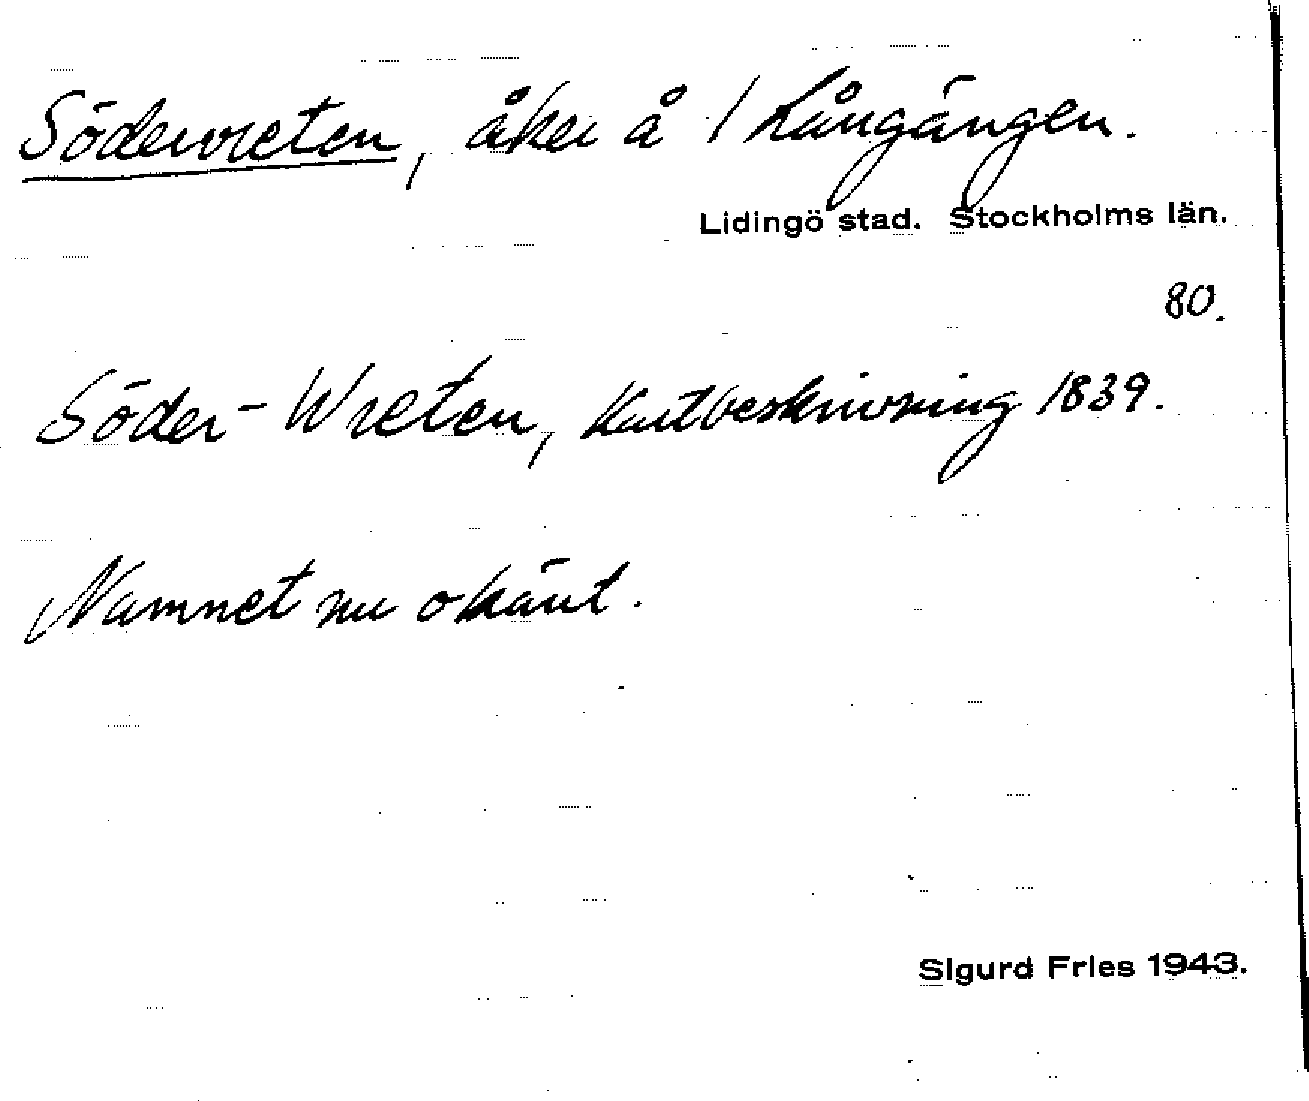 Södervreten, åker å 1 Långängen.
Lidingö stad. Stockholms län.
80.
Söder-Wreten, Kartbeskrivning 1839.
Namnet nu okänt.
Sigurd Fries 1943.